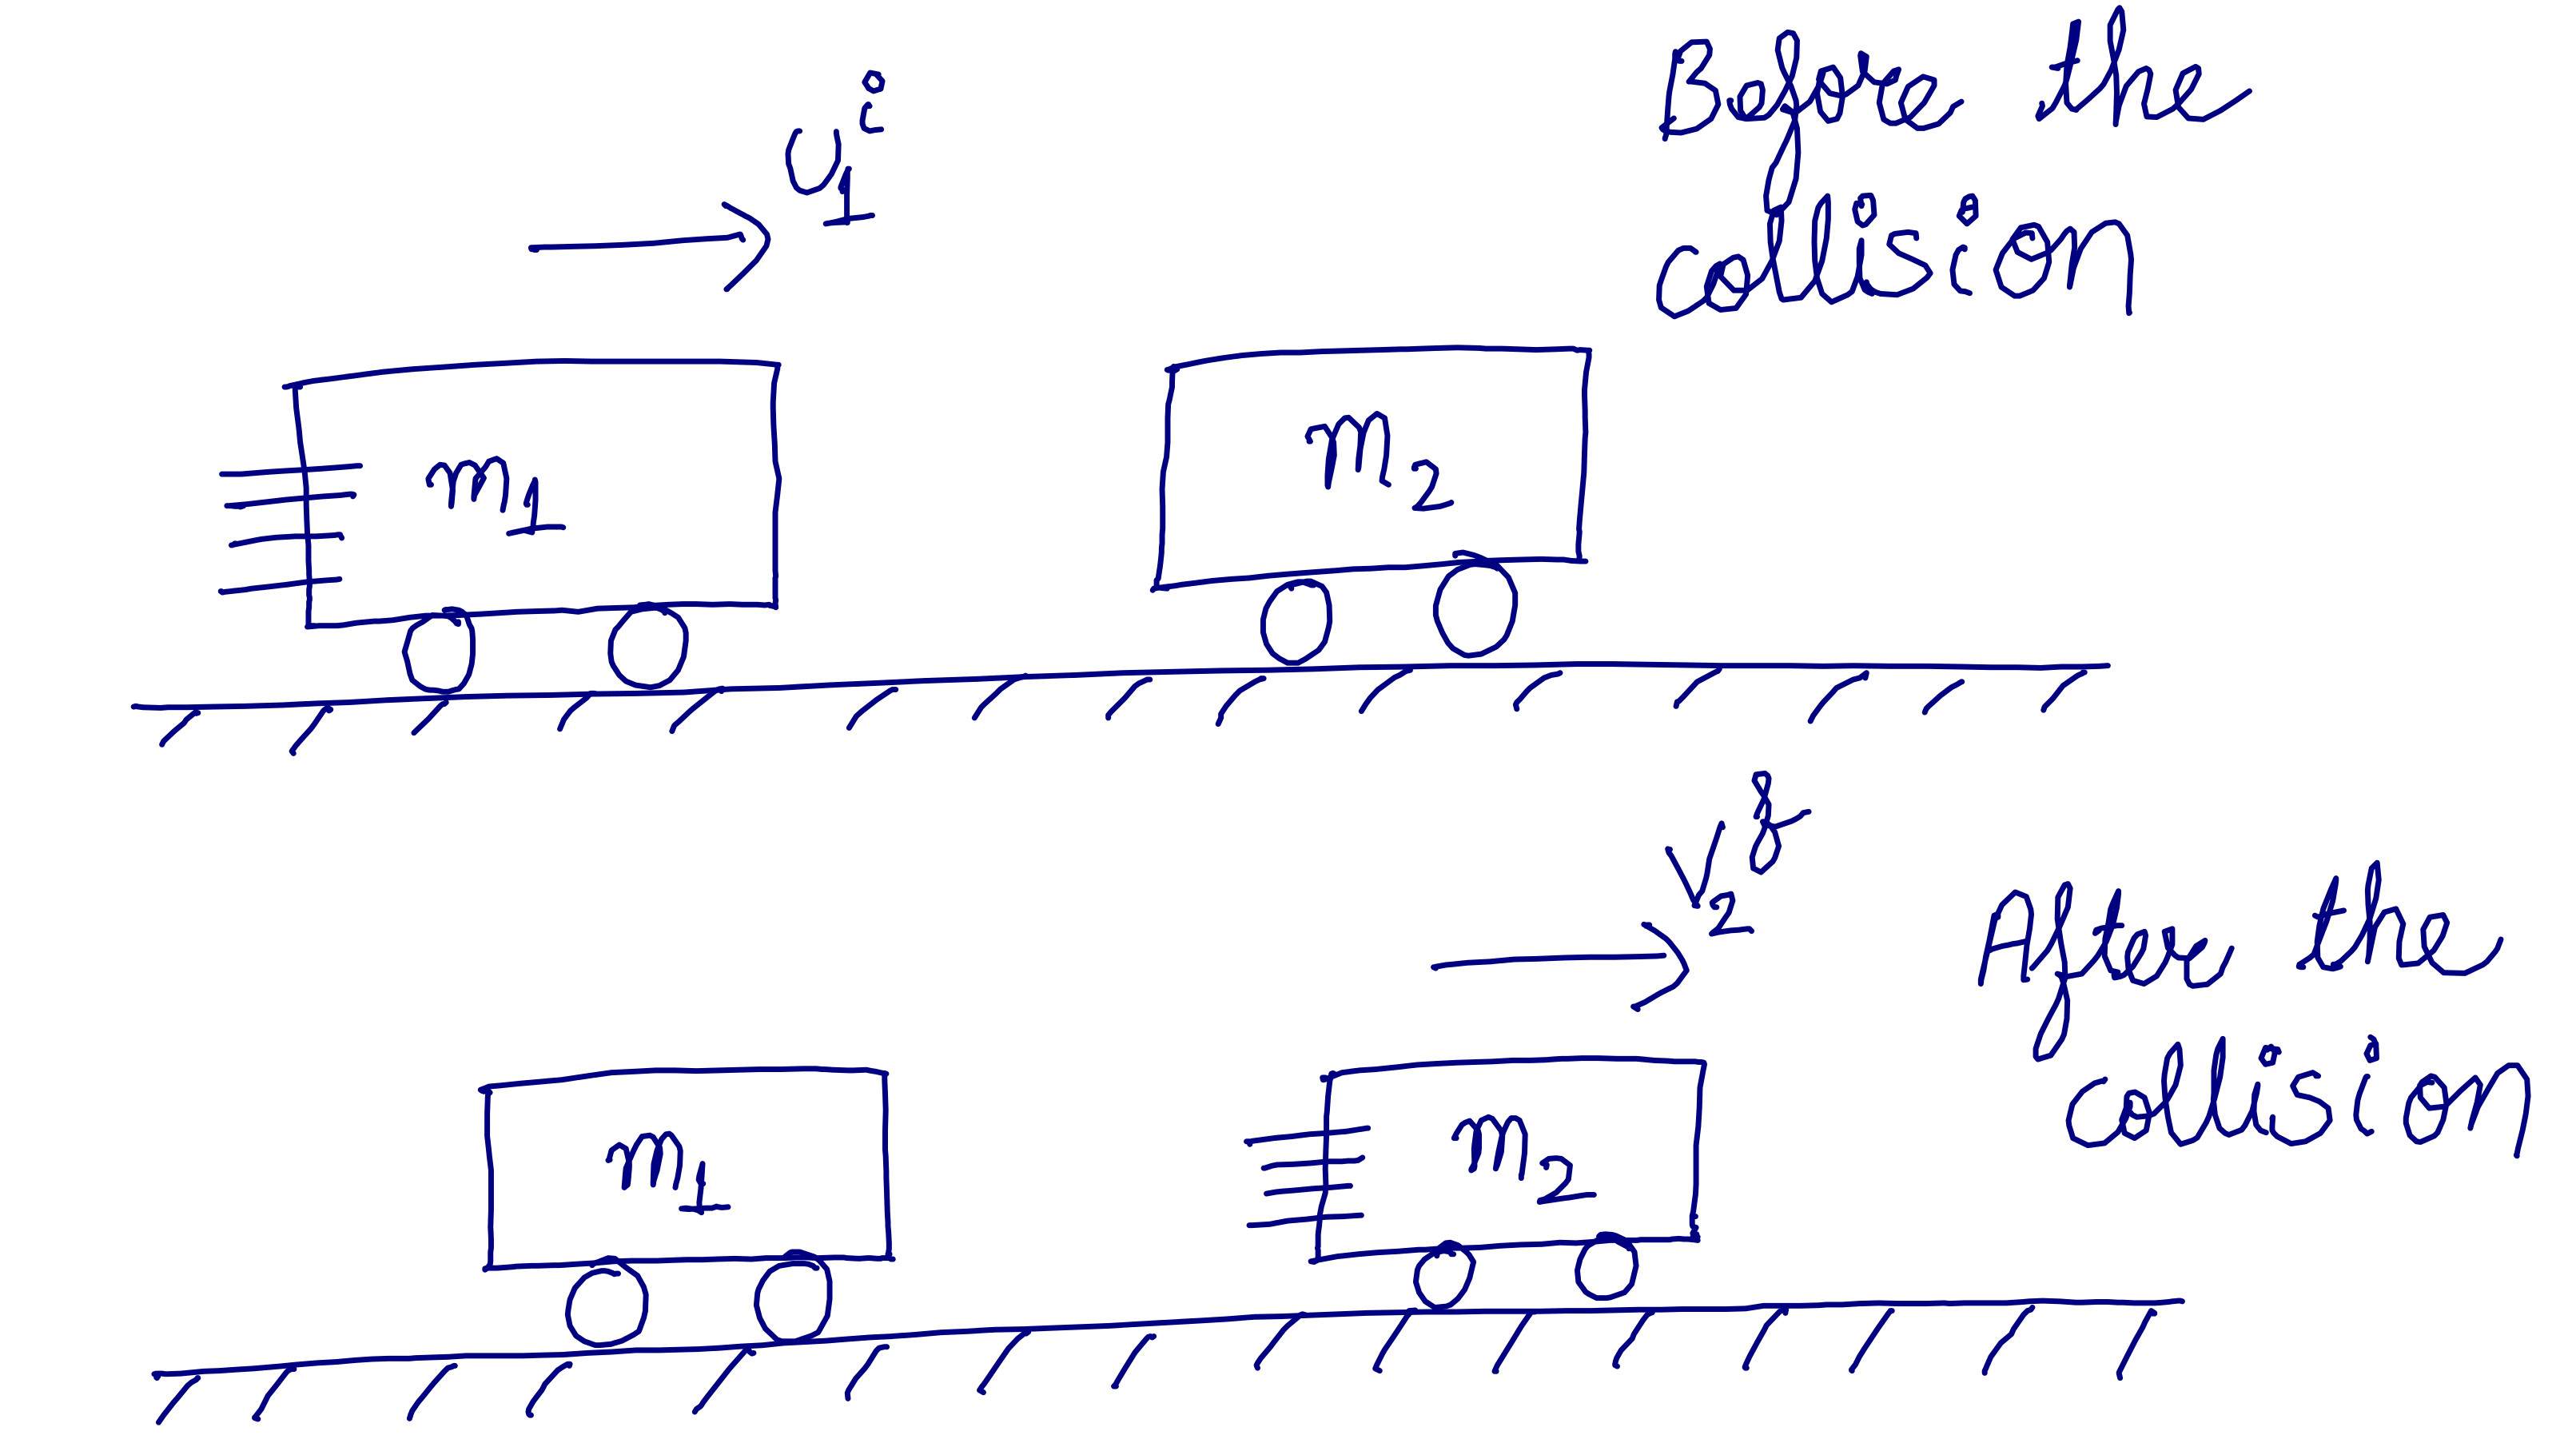 Before the
collision
U₁ⁱ
m₁
m₂
V₂ᶠ
After the
collision
m₁
m₂